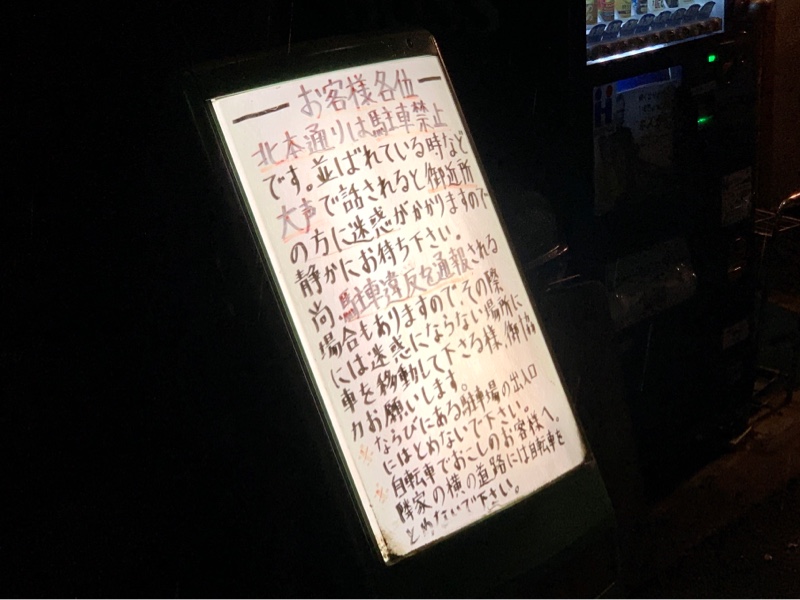 お客様各位
北本通りは駐車禁止
です。並ばれている時など
大声で話されると御近所
の方に迷惑がかかりますので
静かにお待ち下さい。
尚、駐車違反を通報される
場合もありますのでその際
には迷惑にならない場所に
車を移動して下さる様、御協
力お願いします。
※ならびにある駐車場の出入口
にはとめないで下さい。
※自転車でおこしのお客様へ。
隣家の横の道路には自転車を
とめないで下さい。